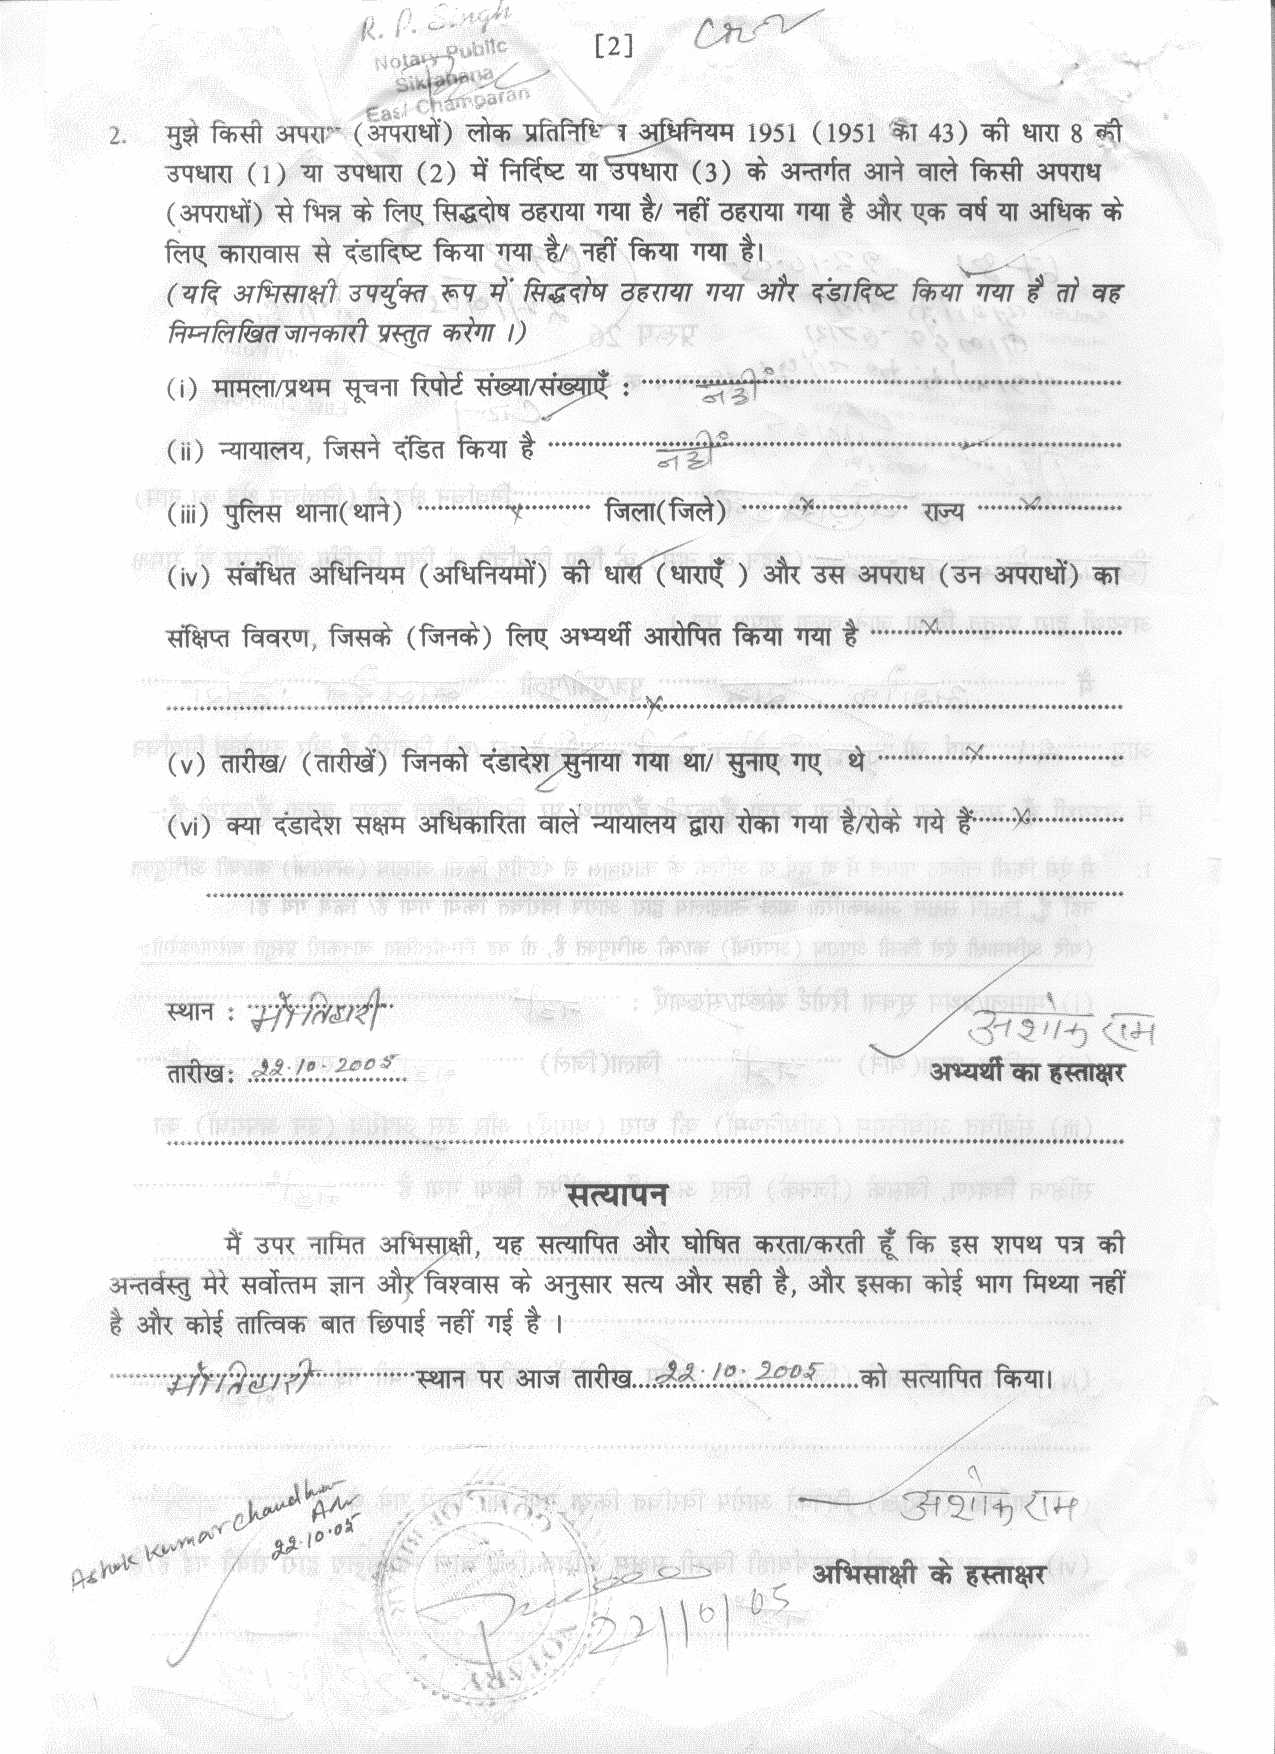 R. P. Singh
Notary Public
Sikrahana
East Champaran
[2]
2. मुझे किसी अपरा (अपराधों) लोक प्रतिनिधि अधिनियम 1951 (1951 का 43) की धारा 8 की
उपधारा (1) या उपधारा (2) में निर्दिष्ट या उपधारा (3) के अन्तर्गत आने वाले किसी अपराध
(अपराधों) से भिन्न के लिए सिद्धदोष ठहराया गया है/ नहीं ठहराया गया है और एक वर्ष या अधिक के
लिए कारावास से दंडादिष्ट किया गया है/ नहीं किया गया है।
(यदि अभिसाक्षी उपर्युक्त रूप में सिद्धदोष ठहराया गया और दंडादिष्ट किया गया है तो वह
निम्नलिखित जानकारी प्रस्तुत करेगा ।)
(i) मामला/प्रथम सूचना रिपोर्ट संख्या/संख्याएँ : नहीं
(ii) न्यायालय, जिसने दंडित किया है नहीं
(iii) पुलिस थाना(थाने) x जिला(जिले) x राज्य x
(iv) संबंधित अधिनियम (अधिनियमों) की धारा (धाराएँ ) और उस अपराध (उन अपराधों) का
संक्षिप्त विवरण, जिसके (जिनके) लिए अभ्यर्थी आरोपित किया गया है x
x
(v) तारीख/ (तारीखें) जिनको दंडादेश सुनाया गया था/ सुनाए गए थे x
(vi) क्या दंडादेश सक्षम अधिकारिता वाले न्यायालय द्वारा रोका गया है/रोके गये हैं x
स्थान : मोतिहारी
अशोक राम
तारीख: 22.10.2005
अभ्यर्थी का हस्ताक्षर
सत्यापन
मैं उपर नामित अभिसाक्षी, यह सत्यापित और घोषित करता/करती हूँ कि इस शपथ पत्र की
अन्तर्वस्तु मेरे सर्वोत्तम ज्ञान और विश्वास के अनुसार सत्य और सही है, और इसका कोई भाग मिथ्या नहीं
है और कोई तात्विक बात छिपाई नहीं गई है ।
मोतिहारी स्थान पर आज तारीख 22.10.2005 को सत्यापित किया।
Ashok Kumar Chaudhar
Adv
22.10.05
अशोक राम
अभिसाक्षी के हस्ताक्षर
22/10/05
NOTARY